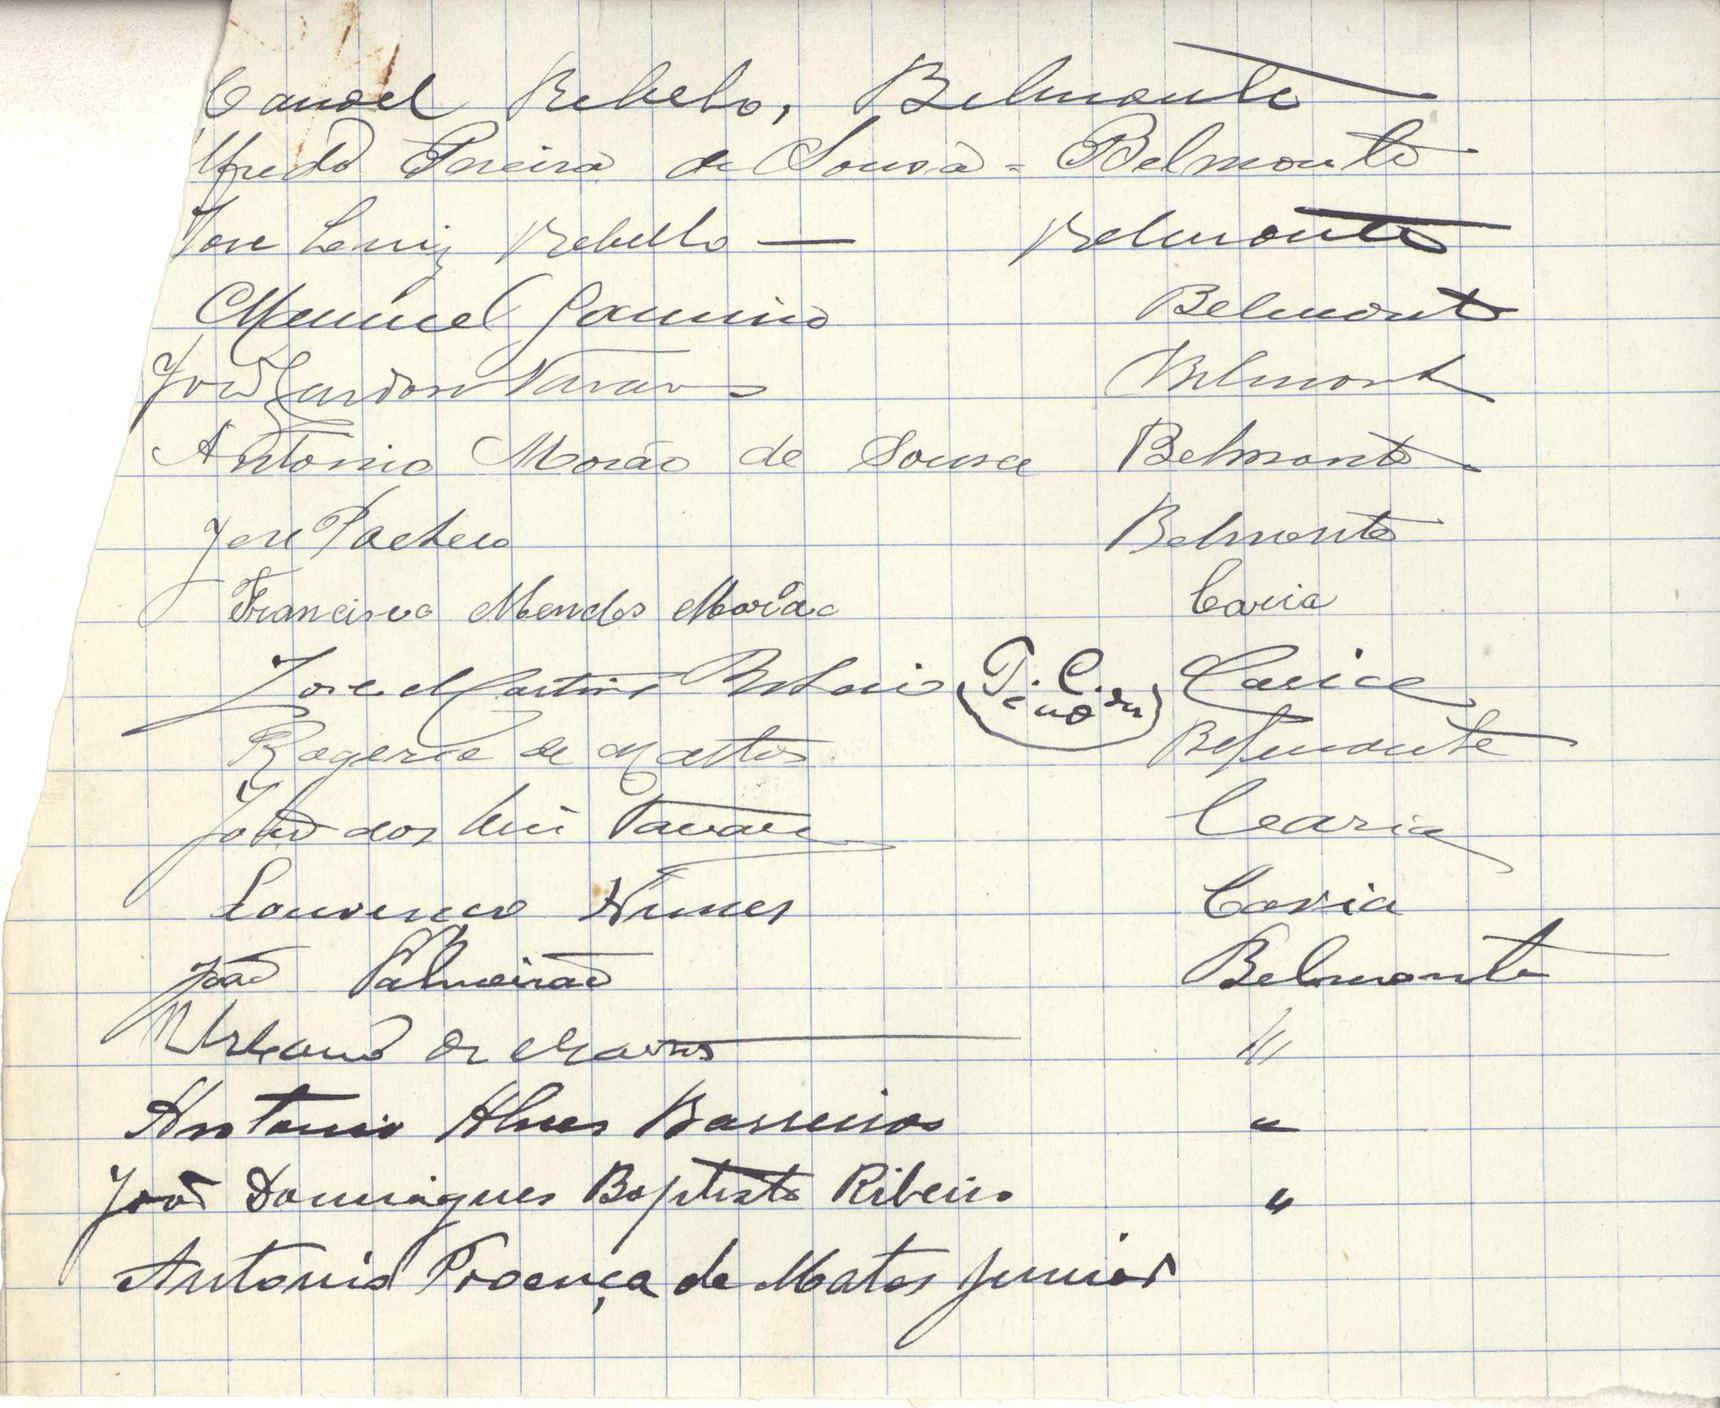 Manoel Rebelo, Belmonte
Alfredo Pereira de Sousa = Belmonte
Jose Luiz Rebello — Belmonte
Manuel Belmonte
José Cardoso Tavares Belmonte
Antonio Morão de Sousa Belmonte
Jose Pacheco Belmonte
Francisco Mendes Morão Caria
Jose Martins Caria
Rogerio de Mattos Belmonte
João dos Tavares Caria
Lourenço Nunes Caria
João Palmeirão Belmonte
Urbano de "
Antonio Alves Barreiros "
João Domingues Baptista Ribeiro "
Antonio Proença de Matos Junior